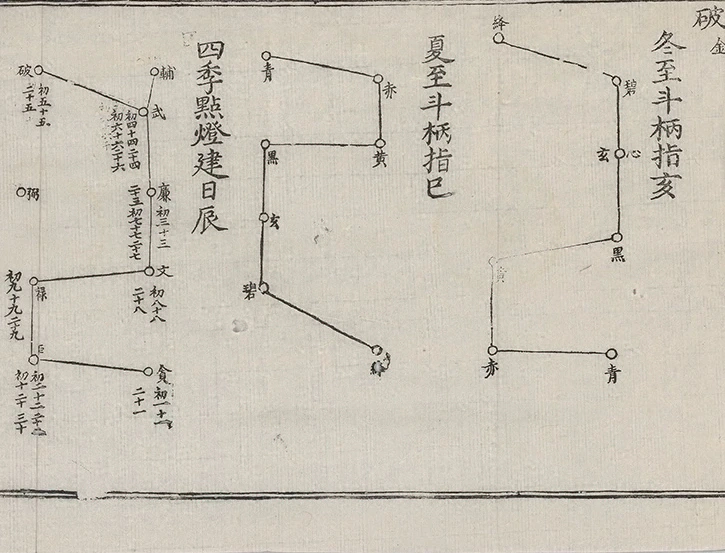 破
金
冬至斗柄指亥
絳
碧
玄
心
黑
黃
赤
青
夏至斗柄指巳
青
赤
黃
黑
玄
碧
四季點燈建日辰
輔
破
初五十五
二十五
武
初四十四二十四
初六十六二十六
弼
廉
初三十三
二十五初七十七二十七
文
初八十八
二十八
祿
初九十九二十九
巨
初二十二二十二
初十二十三十
貪
初一十一
二十一